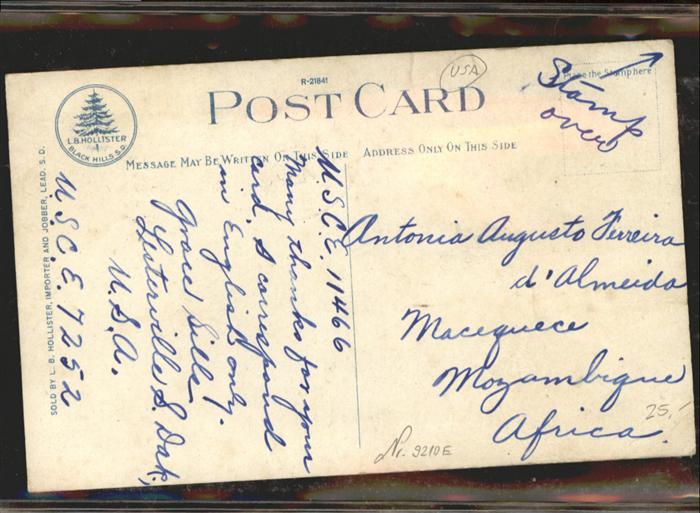 R-21841
USA
POST CARD
Place the Stamp here
Stamp
over
L.B. HOLLISTER
BLACK HILLS S.D.
MESSAGE MAY BE WRITTEN ON THIS SIDE
ADDRESS ONLY ON THIS SIDE
SOLD BY L. B. HOLLISTER, IMPORTER AND JOBBER, LEAD, S. D.
U.S.C.E. 11466
Many thanks for your
card. I correspond
in English only.
Grace Sills
Lesterville S. Dak.,
U.S.A.
U.S.C.E. 7252
Antonia Augusto Ferreira
d'Almeida
Macequece
Mozambique
Africa.
25,-
Nr. 9210E